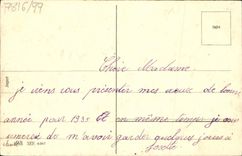 7816/99
Chère Madame
je viens vous présenter mes voeux de bonne
année pour 1935 et en même temps je vous
remercie de m'avoir garder quelques jours à